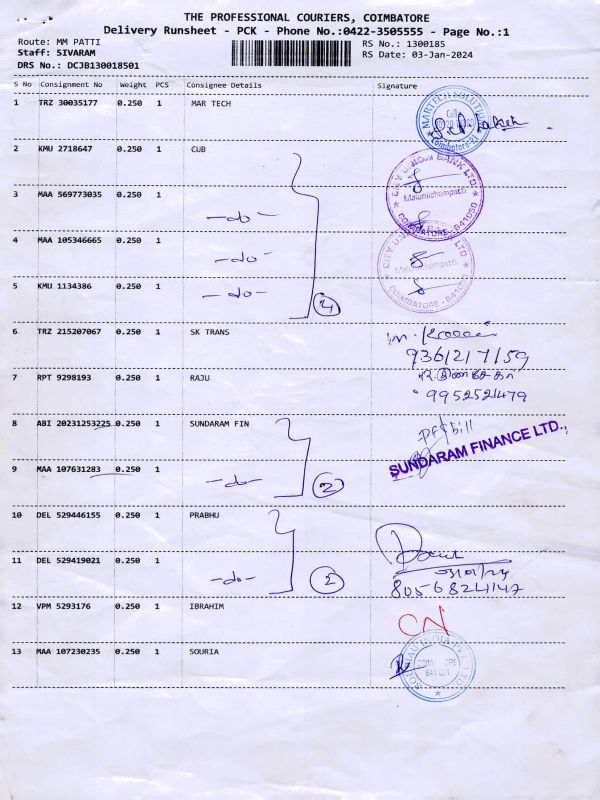 THE PROFESSIONAL COURIERS, COIMBATORE
Delivery Runsheet - PCK - Phone No.:0422-3505555 - Page No.:1
Route: MM PATTI RS No.: 1300185
Staff: SIVARAM RS Date: 03-Jan-2024
DRS No.: DCJB130018501
S No Consignment No Weight PCS Consignee Details Signature
1 TRZ 30035177 0.250 1 MAR TECH
MARTECH SOLUTION
Coimbatore-21
2 KMU 2718647 0.250 1 CUB
CITY UNION BANK LTD.
Malumichampatti
COIMBATORE - 641050
3 MAA 569773035 0.250 1 -do-
4 MAA 105346665 0.250 1 -do-
CITY UNION BANK LTD
Malumichampatti
COIMBATORE - 641050
5 KMU 1134386 0.250 1 -do- 4
6 TRZ 215207067 0.250 1 SK TRANS
9361217159
7 RPT 9298193 0.250 1 RAJU
9952521479
8 ABI 20231253225 0.250 1 SUNDARAM FIN
SUNDARAM FINANCE LTD.,
9 MAA 107631283 0.250 1 -do- 2
10 DEL 529446155 0.250 1 PRABHU
11 DEL 529419021 0.250 1 -do- 2
8056824147
12 VPM 5293176 0.250 1 IBRAHIM CN
13 MAA 107230235 0.250 1 SOURIA
COIMBATORE
641 021